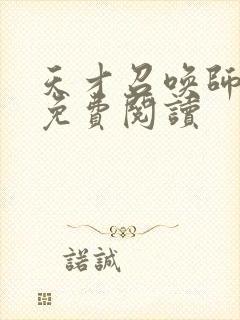 天才召唤師
免費閱讀
諾誠